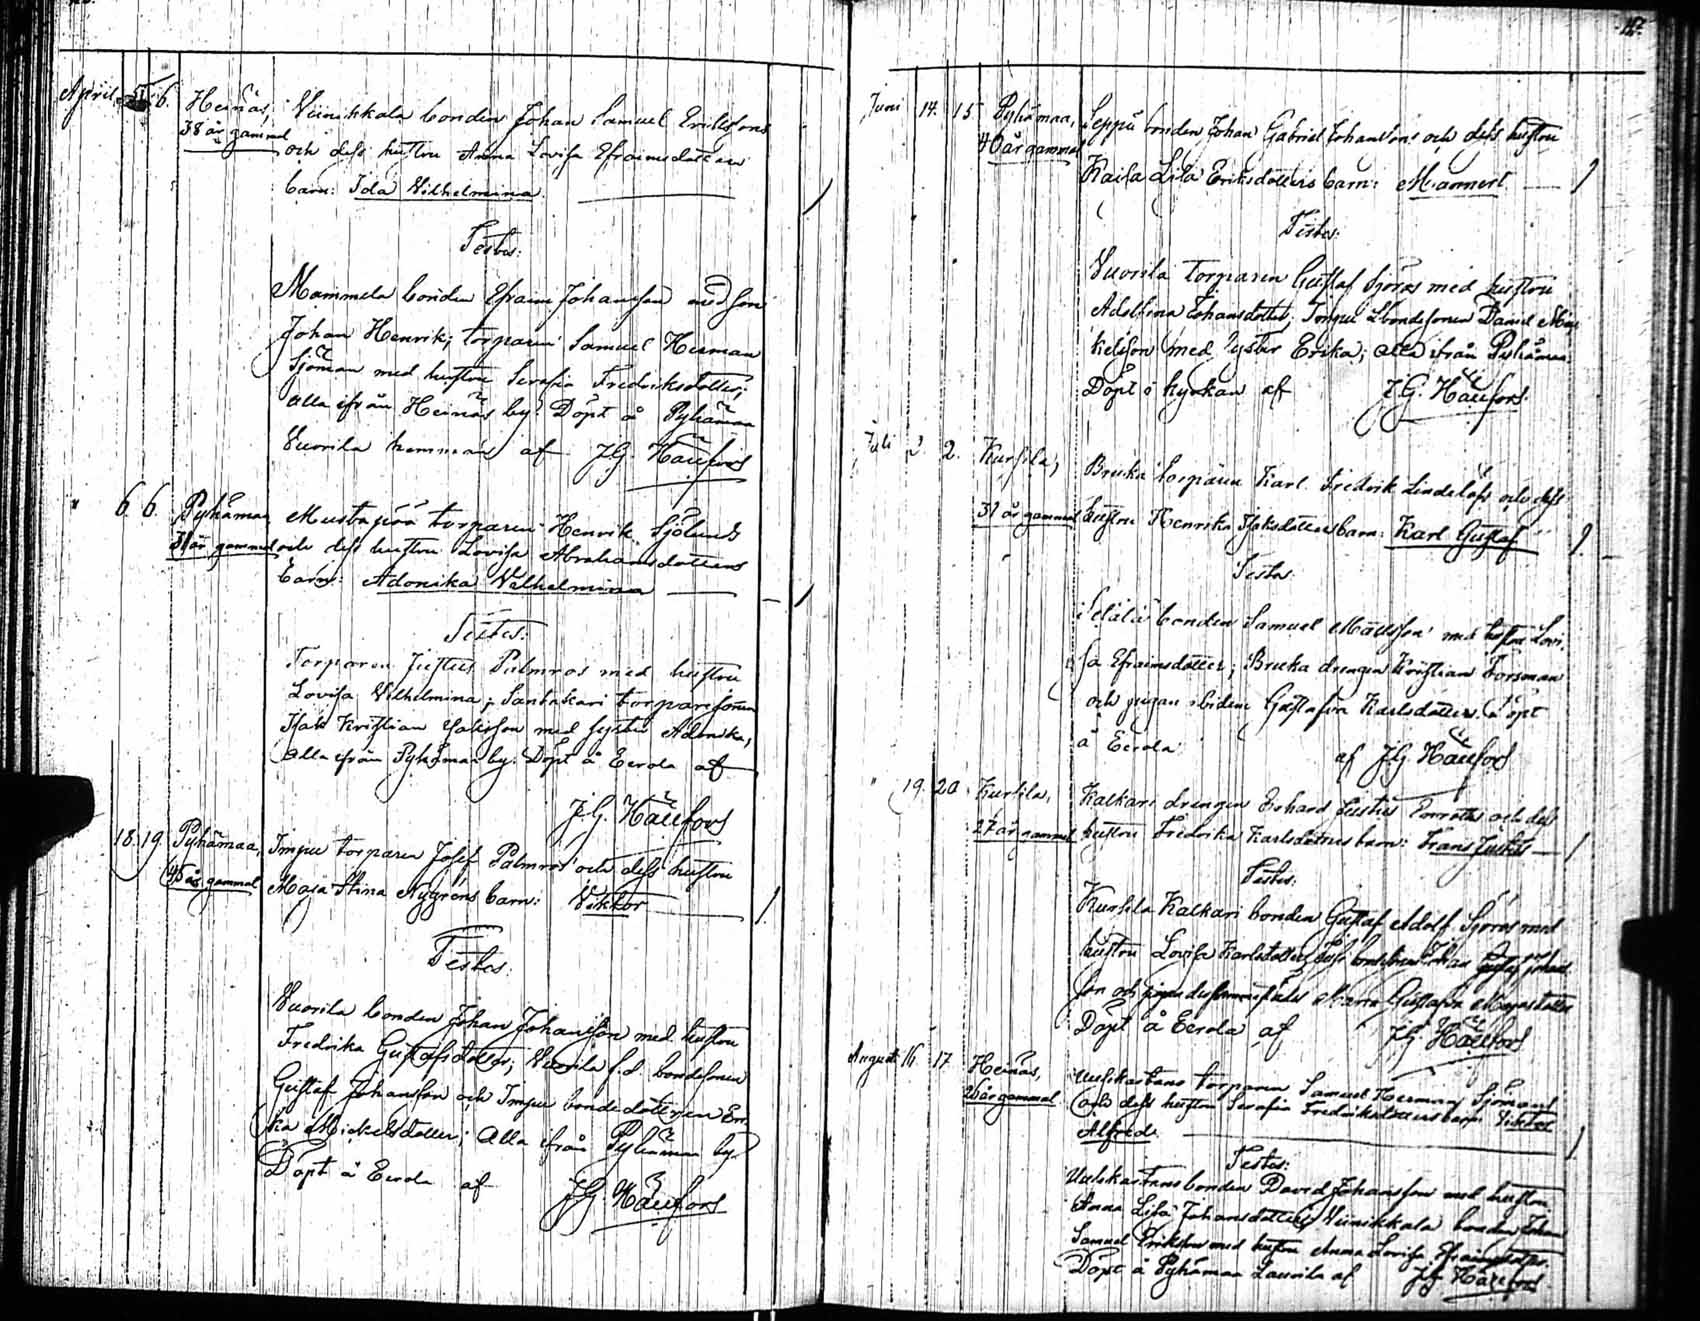 April 5. 6. Heinäs, Viinikkala bonden Johan Samuel Erikssons
38 år gammal och dess hustru Anna Lovisa Efraimsdotters
barn: Ida Vilhelmina.
Testes:
Mammela bonden Efraim Johansson med son
Johan Henrik; torparen Samuel Herman
Sjöman med hustru Serafia Fredriksdotter;
alla ifrån Heinäs by. Döpt å Pyhämaa
Vuorila hemman af J.G. Haufors
" 6. 6. Pyhämaa, Mustajää torparen Henrik Sjölunds
år gammal och dess hustru Lovisa Abrahamsdotters
barn: Adonika Vilhelmina
Testes:
Torparen Justus Palmros med hustru
Lovisa Vilhelmina; Santakari torparesonen
Isak Kristian Isaksson med syster Adonika,
Alla ifrån Pyhämaa by. Döpt å Eerola af
J.G. Haufors
18. 19. Pyhämaa, Impu torparen Josef Palmros och dess hustru
45 år gammal Maja Stina Nygrens barn: Viktor
Testes:
Vuorila bonden Johan Johansson med hustru
Fredrika Gustafsdotter; Vuorila f.d. bondesonen
Gustaf Johansson och Impu bondedottren Eri-
ka Mickelsdotter; Alla ifrån Pyhämaa by.
Döpt å Eerola af J.G. Haufors
47.
Juni 14. 15. Pyhämaa, Seppä bonden Johan Gabriel Johanssons och dess hustru
40 år gammal Kaisa Lisa Eriksdotters barn: Mannert
Testes:
Vuorila torparen Gustaf Sjöros med hustru
Adolfina Johansdotter; Impu bondesonen Daniel Mic-
kelsson med syster Erika; alla ifrån Pyhämaa.
Döpt i kyrkan af J.G. Haufors.
Juli 2. 2. Kursila, Bruka torparen Karl Fredrik Lindelöfs och dess
31 år gammal hustru Henrika Isaksdotters barn: Karl Gustaf
Testes:
Selälä bonden Samuel Mattsson med hustru Lovi-
sa Efraimsdotter; Bruka drengen Kristian Forsman
och pigan ibidem Gustafva Karlsdotter. Döpt
å Eerola af J.G. Haufors
" 19. 20. Kursila, Kalkari drengen Erhard Justus Porraths och dess
27 år gammal hustru Fredrika Karlsdotters barn: Frans Julius
Testes:
Kursila Kalkari bonden Gustaf Adolf Sjöros med
hustru Lovisa Karlsdotter; bondesonen Johan Gustaf Johans-
son och pigan Maria Gustafva
Döpt å Eerola af J.G. Haufors
Augusti 16. 17. Heinäs, Uulskartano torparen Samuel Herman Sjömans
26 år gammal och dess hustru Serafia Fredriksdotters barn: Viktor
Alfred.
Testes:
Uulskartano bonden David Johansson med hustru
Anna Lisa Johansdotter; Viinikkala bonden Johan
Samuel Eriksson med hustru Anna Lovisa Efraimsdotter.
Döpt å Pyhämaa Laurila af J.G. Haufors